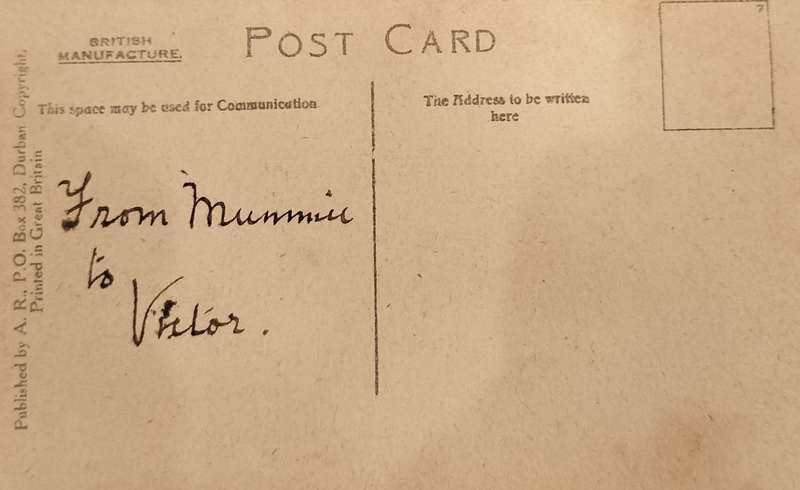 BRITISH
MANUFACTURE.
POST CARD
This space may be used for Communication
The Address to be written
here
From Mummie
to
Victor.
Published by A. R., P.O. Box 382, Durban Copyright.
Printed in Great Britain
7